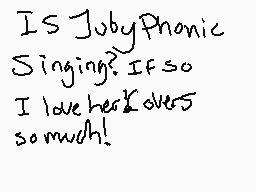 IS JubyPhonic
Singing? IF so
I love her covers
so much!